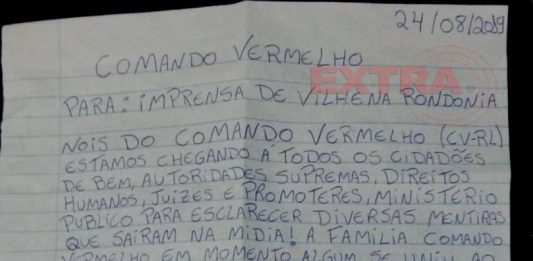 24/08/2019
COMANDO VERMELHO
EXTRA
PARA: IMPRENSA DE VILHENA RONDONIA
NOIS DO COMANDO VERMELHO (CV-RL)
ESTAMOS CHEGANDO Á TODOS OS CIDADÕES
DE BEM, AUTORIDADES SUPREMAS, DIREITOS
HUMANOS, JUIZES E PROMOTERES, MINISTERIO
PUBLICO PARA ESCLARECER DIVERSAS MENTIRAS
QUE SAIRAM NA MIDIA! A FAMÍLIA COMANDO
VERMELHO EM MOMENTO ALGUM SE UNIU AO